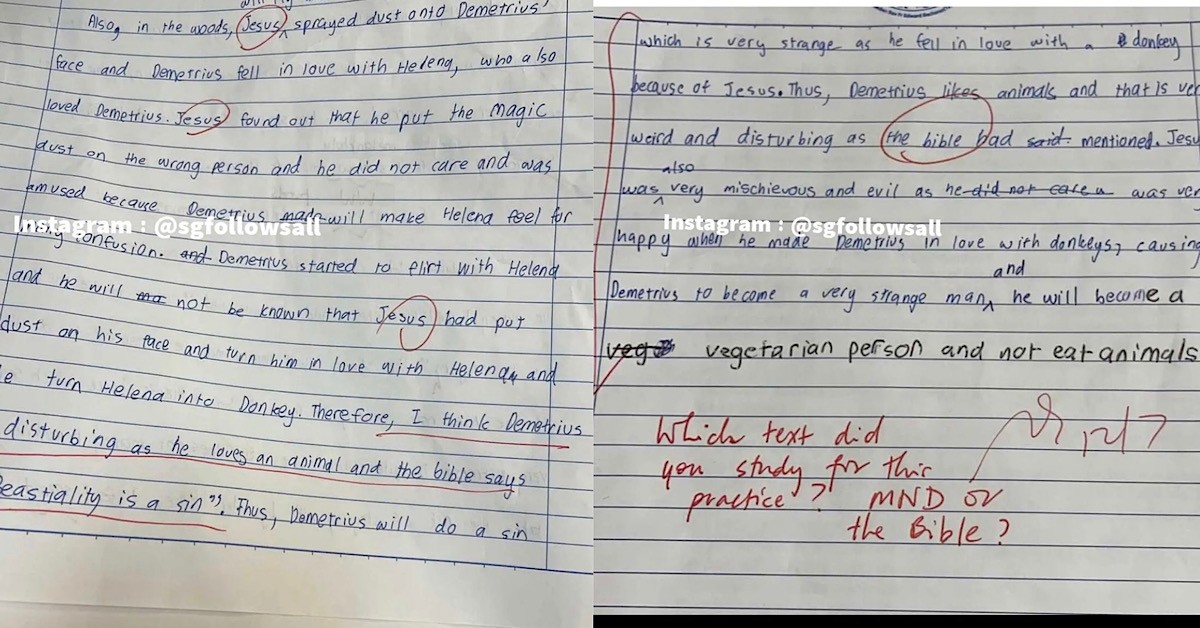 will fly
Also, in the woods, Jesus ^ sprayed dust onto Demetrius'
face and Demetrius fell in love with Helena, who also
loved Demetrius. Jesus found out that he put the magic
dust on the wrong person and he did not care and was
amused because Demetrius made will make Helena feel for
confusion. and Demetrius started to flirt with Helena
and he will not be known that Jesus had put
dust on his face and turn him in love with Helena, and
e turn Helena into Donkey. Therefore, I think Demetrius
disturbing as he loves an animal and the bible says
Beastiality is a sin". Thus, Demetrius will do a sin
Instagram : @sgfollowsall
which is very strange as he fell in love with a donkey
because of Jesus. Thus, Demetrius likes animals and that is ver
weird and disturbing as the bible had said mentioned. Jesu
also
was ^ very mischievous and evil as he did not care a was ver
happy when he made Demetrius in love with donkeys, causing
and
Demetrius to become a very strange man ^ he will become a
veg vegetarian person and not eat animals
Instagram : @sgfollowsall
Which text did
you study for this
practice? MND or
the Bible?